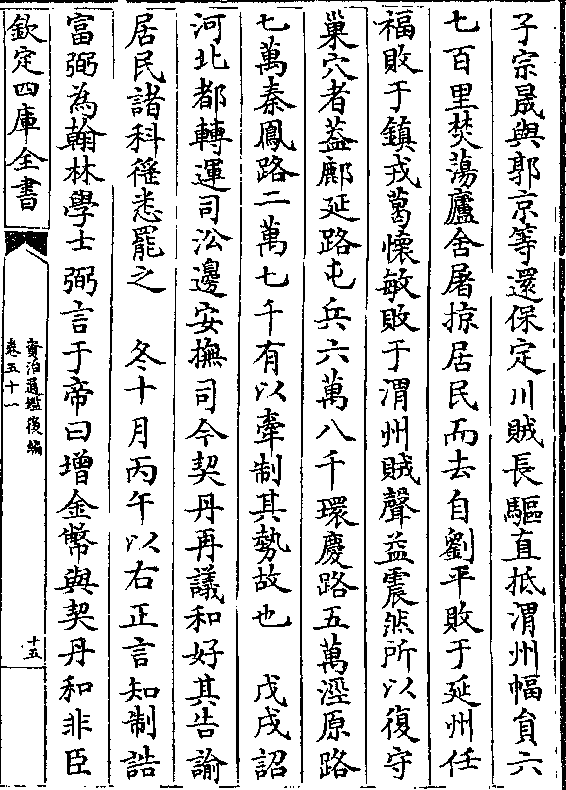 子宗晟與郭京等還保定川賊長驅直抵渭州幅員六
七百里焚蕩廬舍屠掠居民而去自劉平敗于延州任
福敗于鎮戎葛懷敏敗于渭州賊聲益震然所以復守
巢穴者葢鄜延路屯兵六萬八千環慶路五萬涇原路
七萬秦鳳路二萬七千有以牽制其勢故也　戊戌詔
河北都轉運司㳂邊安撫司今契丹再議和好其告諭
居民諸科徭悉罷之　冬十月丙午以右正言知制誥
富弼為翰林學士弼言于帝曰增金幣與契丹和非臣
欽定四庫全書
資治通鑑後編
卷五十一
十五